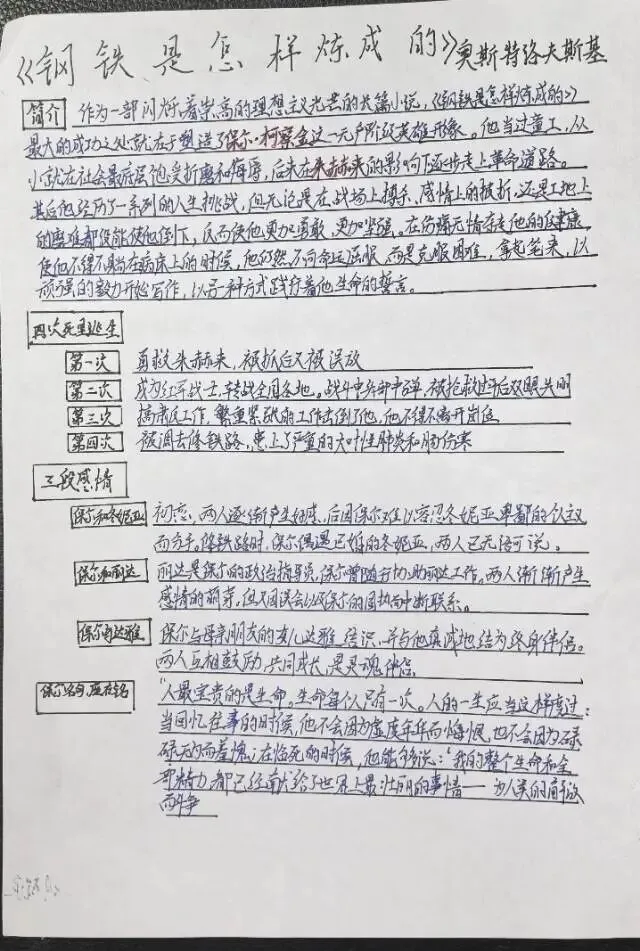 《钢铁是怎样炼成的》奥斯特洛夫斯基
简介 作为一部闪烁着崇高的理想主义光芒的长篇小说，《钢铁是怎样炼成的》
最大的成功之处就在于塑造了保尔·柯察金这一无产阶级英雄形象。他当过童工，从
小就在社会最底层饱受折磨和侮辱，后来在朱赫来的影响下逐步走上革命道路。
其后他经历了一系列的人生挑战，但无论是在战场上搏杀、感情上的挫折，还是工地上
的磨难都没能使他倒下，反而使他更加勇敢、更加坚强。在伤痛无情夺走他的健康，
使他不得不躺在病床上的时候，他仍然不向命运屈服，而是克服困难，拿起笔来，以
顽强的毅力开始写作，以另一种方式践行着他生命的誓言。
四次死里逃生
第一次 勇救朱赫来，被抓后又被误放
第二次 成为红军战士，转战全国各地。战斗中头部中弹，被抢救过后双眼失明
第三次 搞肃反工作，繁重紧张的工作击倒了他，他不得不离开岗位
第四次 被调去修铁路，患上了严重的大叶性肺炎和肠伤寒
三段感情
保尔和冬妮亚 初恋，两人逐渐产生好感，后因保尔难以容忍冬妮亚卑鄙的
而分手。修铁路时，保尔偶遇已婚的冬妮亚，两人已无话可说。
保尔和丽达 丽达是保尔的政治指导员，保尔曾随行协助丽达工作。两人渐渐产生
感情的萌芽，但又因误会以及保尔的固执而中断联系。
保尔与达雅 保尔与母亲朋友的女儿达雅结识，并与他真诚地结为终身伴侣。
两人互相鼓励，共同成长，是灵魂伴侣
保尔名句
"人最宝贵的是生命。生命每个人只有一次。人的一生应当这样度过：
当回忆往事的时候，他不会因为虚度年华而悔恨，也不会因为碌
碌无为而羞愧；在临死的时候，他能够说："我的整个生命和全
部精力都已经献给了世界上最壮丽的事情——为人类的解放
而斗争